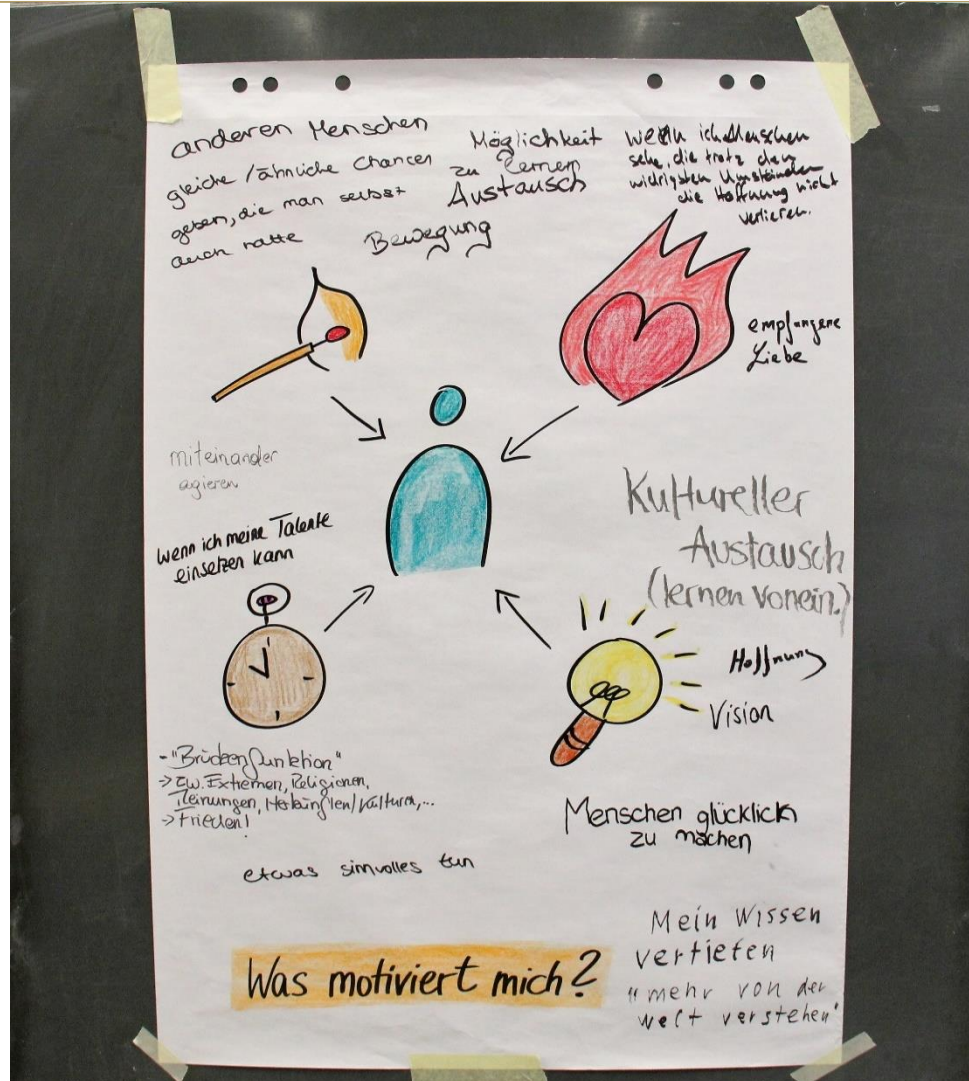 anderen Menschen
gleiche / ähnliche Chancen
geben, die man selbst
auch hatte
Möglichkeit
zu lernen
Austausch
Bewegung
wenn ich Menschen
sehe, die trotz den
widrigsten Umständen
die Hoffnung nicht
verlieren.
empfangene
Liebe
miteinander
agieren
wenn ich meine Talente
einsetzen kann
Kultureller
Austausch
(lernen vonein.)
Hoffnung
Vision
- "Brückenfunktion"
-> zw. Extremen, Religionen,
Meinungen, Herkünften/Kulturen,...
-> Frieden!
Menschen glücklich
zu machen
etwas sinnvolles tun
Mein Wissen
vertiefen
"mehr von der
Welt verstehen"
Was motiviert mich?